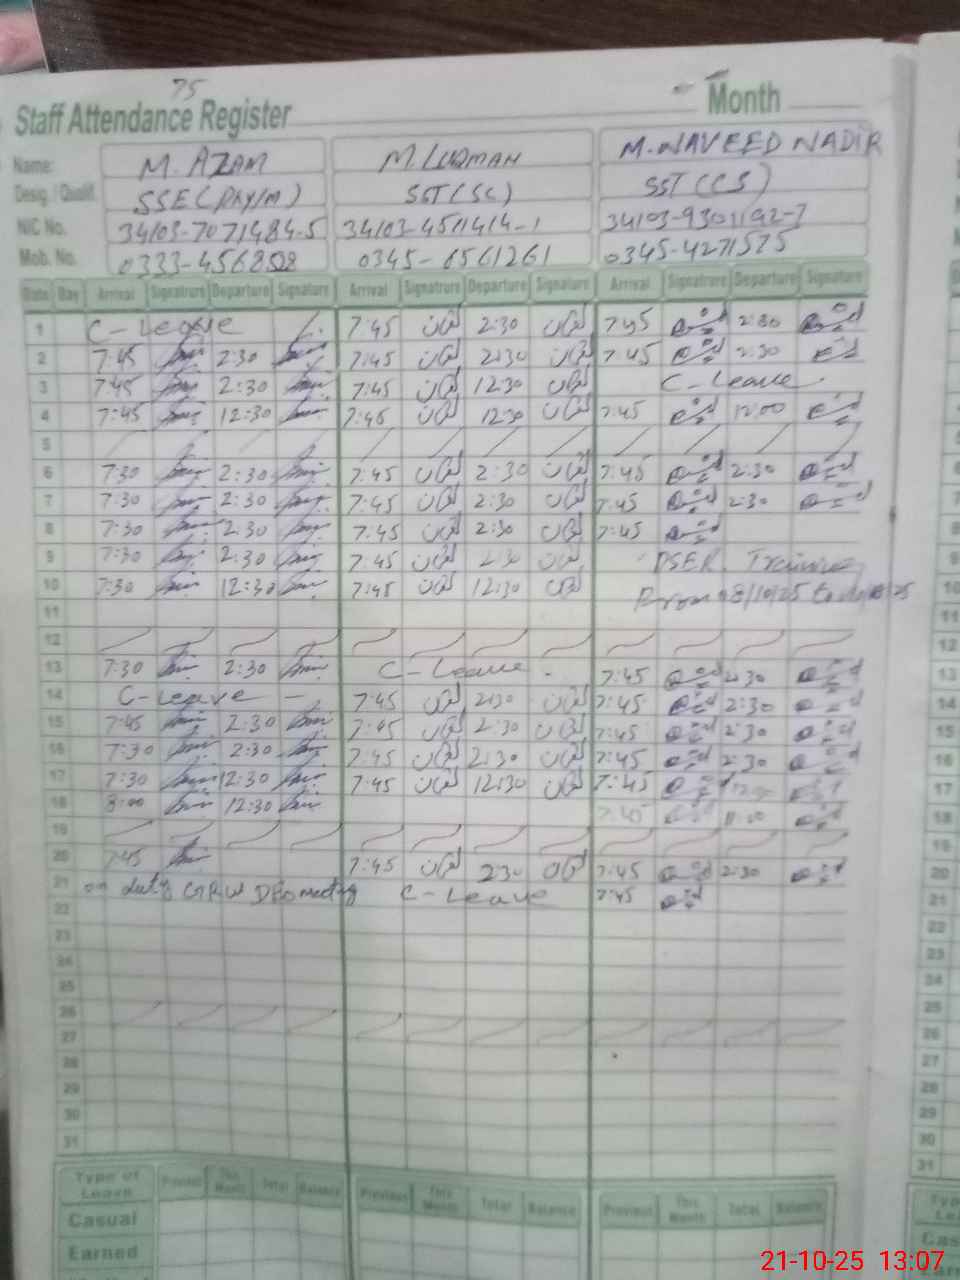 75
Staff Attendance Register Month
Name: M. AZAM M. LUQMAN M. NAVEED NADIR
Desig / Qualif. SSE (PHY/M) SST (SC) SST (CS)
NIC No. 34103-7071484-5 34103-4511414-1 34103-9301192-7
Mob. No. 0345-6561261 0345-4271575
Date Day Arrival Signatrure Departure Signature Arrival Signatrure Departure Signature Arrival Signatrure Departure Signature
1 C-Leave 7:45 لقمان 2:30 لقمان 7:45 2:30
2 7:45 2:30 7:45 لقمان 2:30 لقمان 7:45 2:30
3 7:45 2:30 7:45 لقمان 12:30 لقمان C-Leave
4 7:45 12:30 7:45 لقمان 12:30 لقمان 7:45 12:00
5
6 7:30 2:30 7:45 لقمان 2:30 لقمان 7:45 2:30
7 7:30 2:30 7:45 لقمان 2:30 لقمان 7:45 2:30
8 7:30 2:30 7:45 لقمان 2:30 لقمان 7:45
9 7:30 2:30 7:45 لقمان 2:30 لقمان Training
10 7:30 12:30 7:45 لقمان 12:30 لقمان From 8/10/25 to
11
12
13 7:30 2:30 C-Leave 7:45 2:30
14 C-Leave 7:45 لقمان 2:30 لقمان 7:45 2:30
15 7:45 2:30 7:45 لقمان 2:30 لقمان 7:45 2:30
16 7:30 2:30 7:45 لقمان 2:30 لقمان 7:45 2:30
17 7:30 12:30 7:45 لقمان 12:30 لقمان 7:45
18 8:00 12:30 7:45
19
20 7:45 7:45 لقمان 2:30 لقمان 7:45 2:30
21 on duty GRW DEO meeting C-Leave 7:45
22
23
24
25
26
27
28
29
30
31
Type of Leave Previous This Month Total Balance Previous This Month Total Balance Previous This Month Total Balance
Casual
Earned
21-10-25 13:07